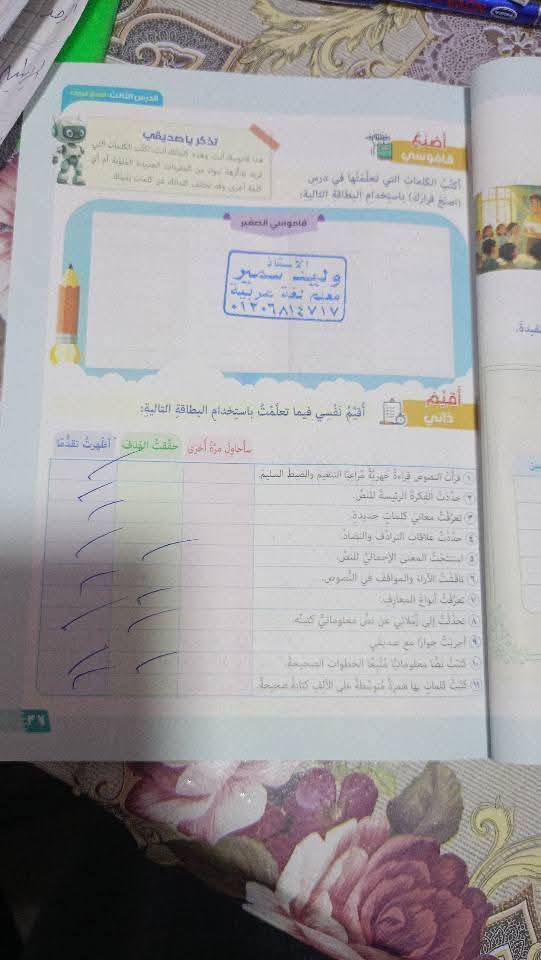 الدرس الثالث
تذكر يا صديقي
أصنع
قاموسي
أكتب الكلمات التي تعلمتها في درس
(اصنع قرارك) باستخدام البطاقة التالية:
قاموسي الصغير
الأستاذ
وليد سمير
معلم لغة عربية
٠١٢٠٦٨١٤٧١٧
أقيّم
ذاتي
أُقيِّمُ نَفْسي فيما تعلَّمْتُ باستِخدامِ البطاقةِ التاليةِ:
سأحاول مرَّةً أخرى
حقَّقتُ الهدَفَ
أظهرتُ تقدُّمًا
١ قرأتُ النصوص قراءةً جهريَّةً مُراعيًا التنغيم والضبطَ السليمَ.
٢ حدَّدتُ الفكرةَ الرئيسةَ للنصِّ.
٣ تعرَّفتُ معاني كلماتٍ جديدةٍ.
٤ حدَّدتُ علاقات الترادُف والتضادِّ.
٥ استنتجتُ المعنى الإجماليَّ للنصِّ.
٦ ناقشتُ الآراءَ والمواقفَ في النُّصوصِ.
٧ تعرَّفتُ أنواعَ المعارف.
٨ تحدَّثتُ إلى زُملائي عن نصٍّ معلوماتيٍّ كتبتُه.
٩ أجريتُ حوارًا مع صديقي.
١٠ كتبتُ نصًّا معلوماتيًّا مُتَّبعًا الخطواتِ الصحيحةَ.
١١ كتبتُ كلماتٍ بها همزةٌ مُتوسِّطةٌ على الألِف كتابةً صحيحةً.
٣٧